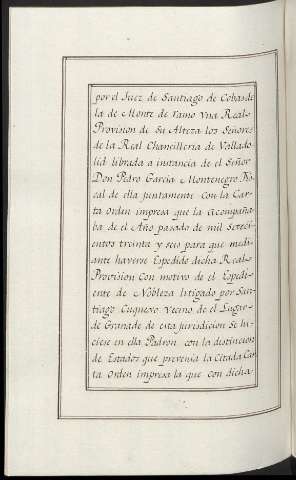 por el Juez de Santiago de Cobasde
la de Monte de ramo Vna Real
Provision de Su Alteza los Señores
de la Real Chancilleria de Vallado
lid librada a instancia de el Señor
Don Pedro Garcia Montenegro Fis
cal de ella juntamente con la Car
ta orden impresa que la acompaña
ba de el Año pasado de mil Seteci
entos treinta y seis para que medi
ante haverse Expedido dicha Real
Provision Con motivo de el Expedi
ente de Nobleza litigado por San
tiago Cuquexo Vecino de el Lugar
de Granade de esta jurisdicion Se hi
ciese en ella Padron con la distincion
de Estados que prevenia la Citada Car
ta Orden impresa la que con dicha